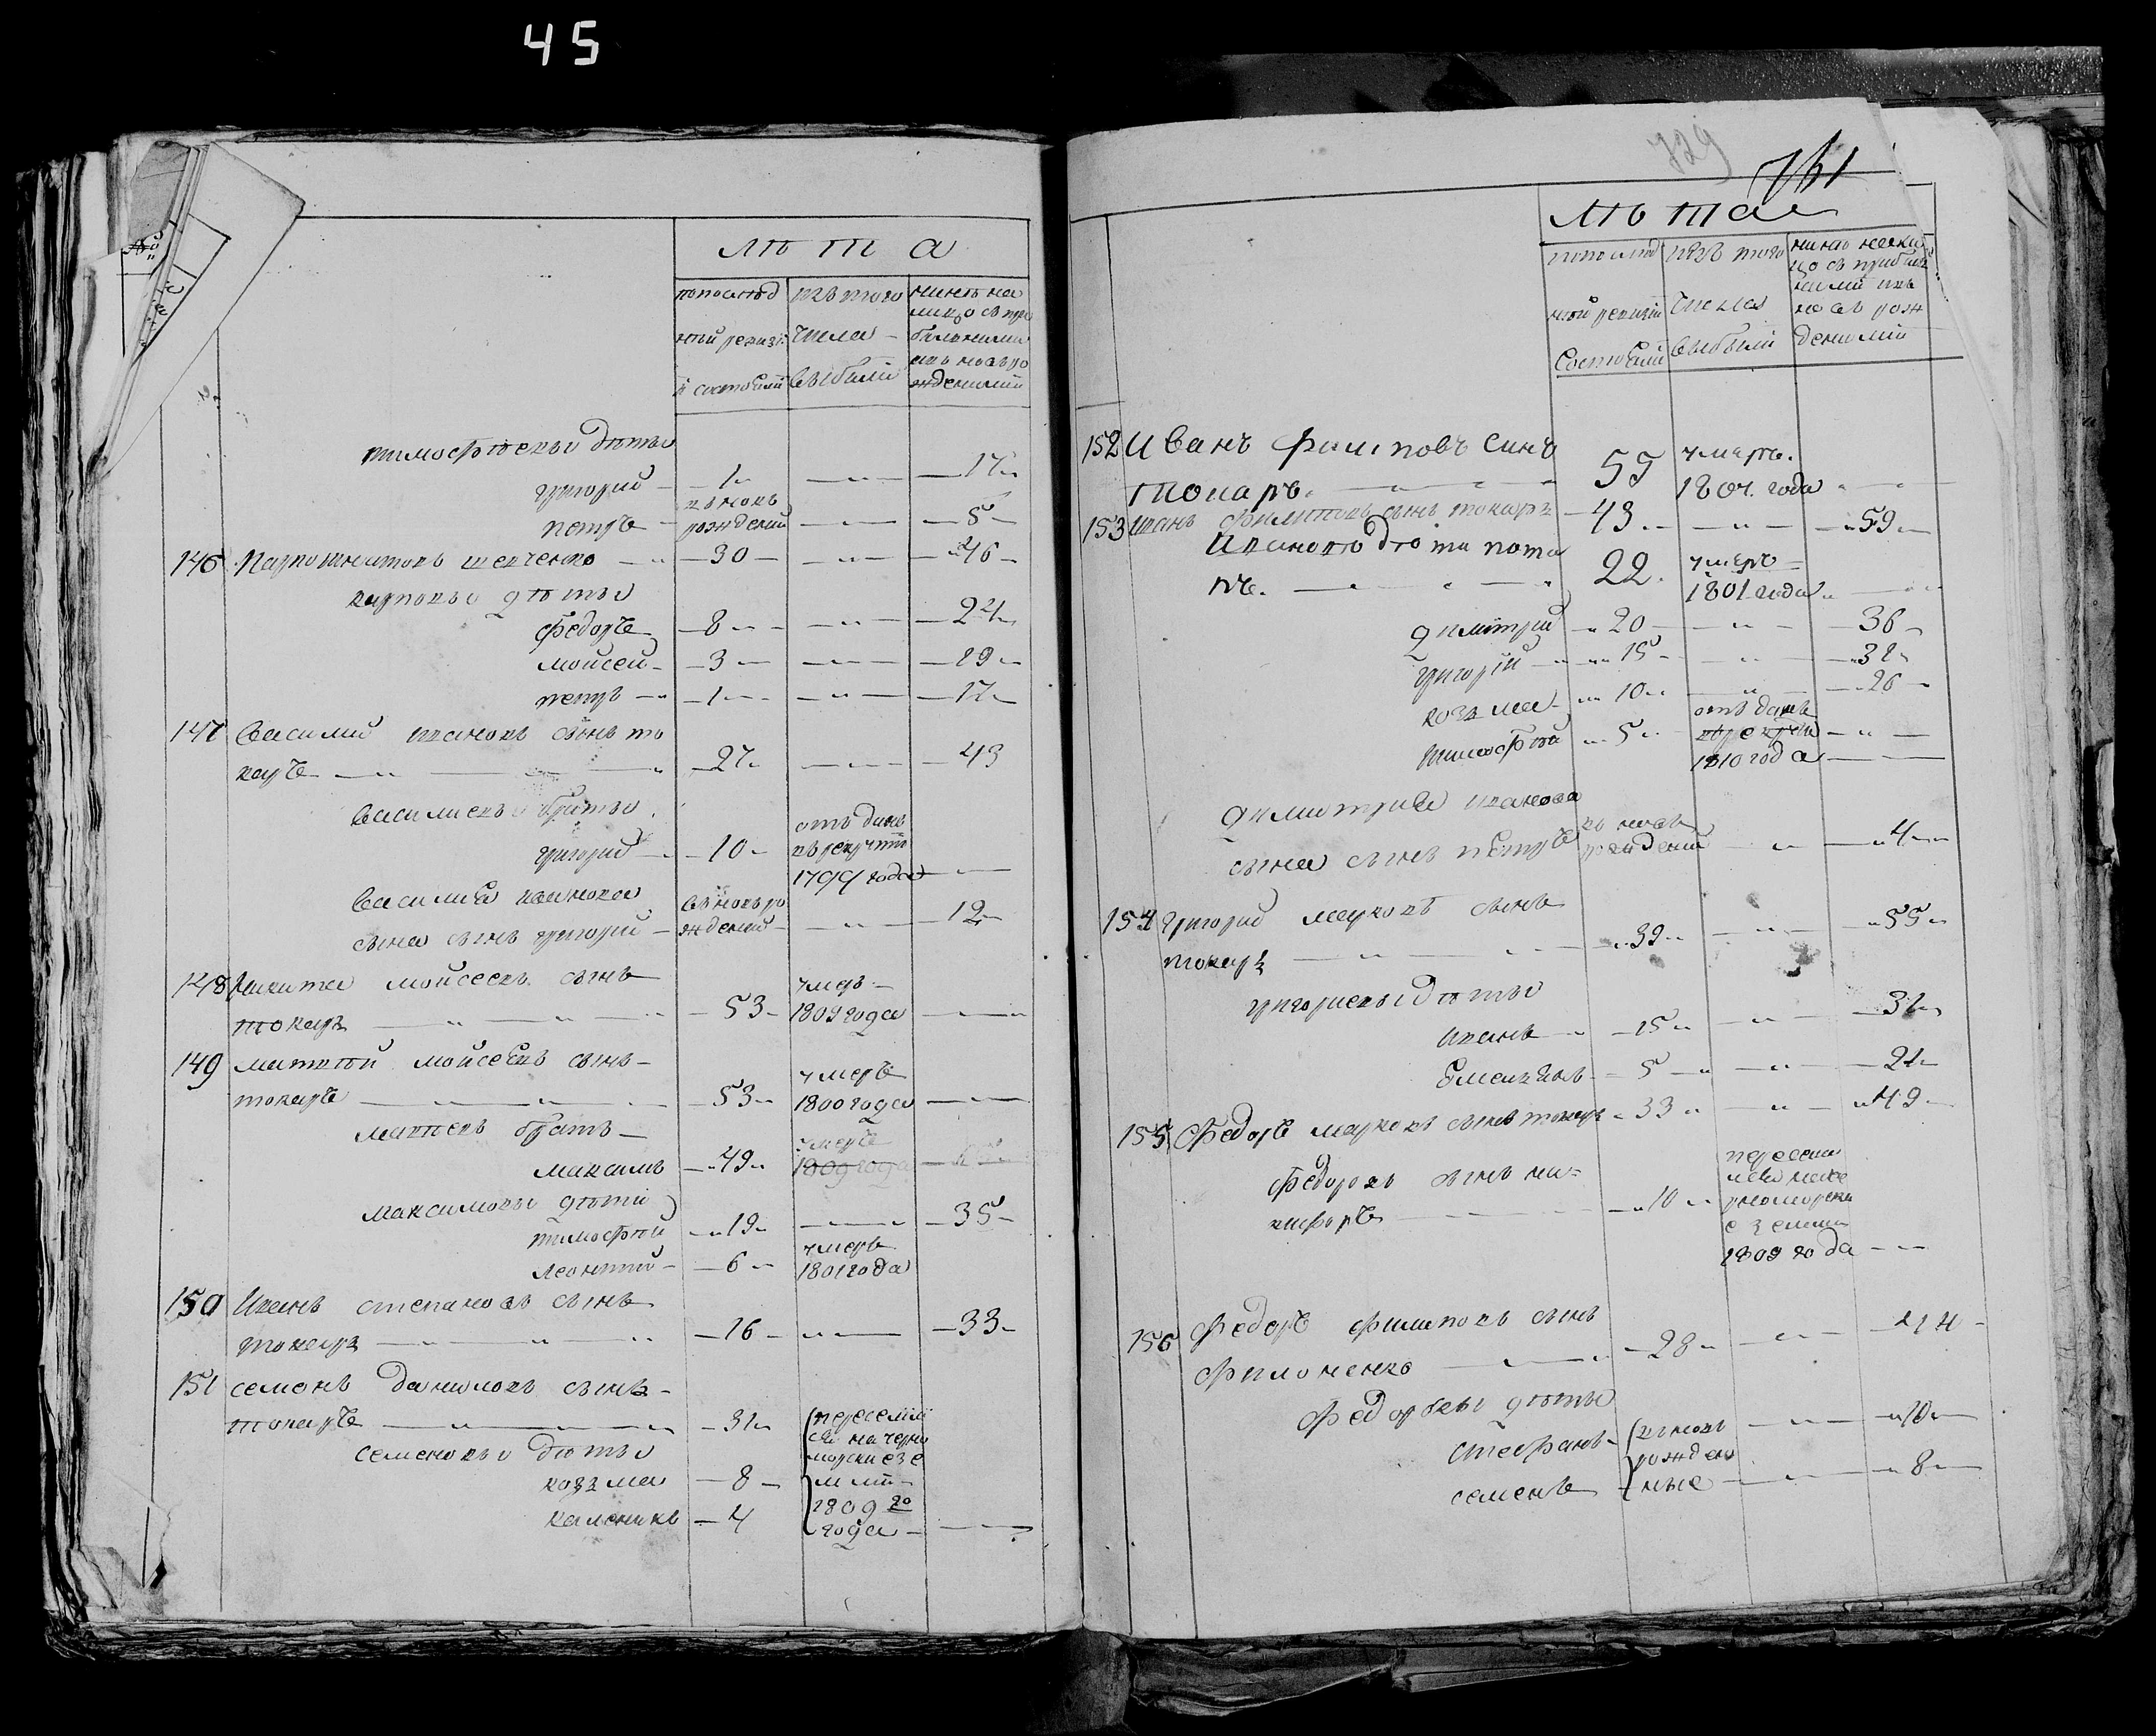 45
лѣта
по послѣд
ней ревизі
и состояли
изъ того
числа
выбыли
нинѣ на
лицо съ при
былыми
изъ новоро
жденими
тимофѣевы дѣты
григорий — 1 — — 17
петръ
въ новь
рождений — — 5
146 Карпо игнатовъ шевченко — 30 — — 46
карповы дѣты
федоръ — 8 — — 24
мойсей — 3 — — 19
петръ — 1 — — 17
147 Василий ивановъ сынъ то
каръ — 27 — — 43
василиевы браты
григорий — 10
отъ данъ
въ рекруты
1799 года —
василия иванова
сына сынъ григорий
въ новь ро
ждений — — 12
148 Никита мойсеевъ сынъ
токаръ — 53
умеръ
1809 года —
149 матвѣй мойсеевъ сынъ
токаръ — 53
умеръ
1800 года —
матвеевъ братъ
максимъ — 49
умеръ
1809 года
максимовы дѣти
тимофѣй — 19 — — 35
леонтий — 6
умеръ
1801 года
150 Иванъ степановъ сынъ
токаръ — 16 — — 33
151 семенъ даниловъ сынъ
токаръ — 31
семеновы дѣты
козма — 8
каленикъ — 4
переселил
ся на черно
морские зе
мли
1809 го
года —
729
761
лѣта
по послѣд
ней ревизіи
состояли
изъ того
числа
выбыли
нинѣ на ли
цо съ прибылы
ними изъ
новь рож
деними
152 Иванъ филиповъ синъ
токаръ — 55
умеръ
1804 года —
153 иванъ филиповъ сынъ токаръ — 43 — — 59
ивановы дѣти пота
пъ — 22
умеръ
1801 года —
димитрий — 20 — — 36
григорій — 15 — — 31
козма — 10 — — 26
тимофѣй — 5
отъ данъ
въ рекруты
1810 года —
димитрия иванова
сына сынъ петръ
въ новь
рождений — — 4
154 григорий марковъ сынъ
токаръ — 39 — — 55
григориевы дѣты
иванъ — 15 — — 31
Емелиянъ — 5 — — 21
155 Федоръ марковъ сынъ токаръ — 33 — — 49
федоровъ сынъ ни=
кифоръ — 10
пересели
лся на че
рноморски
е земли
1809 года —
156 Федоръ филиповъ сынъ
филоненко — 28 — — 44
федоровы дѣты
стефанъ — 10
семенъ — 8
въ новь
рожден
ные